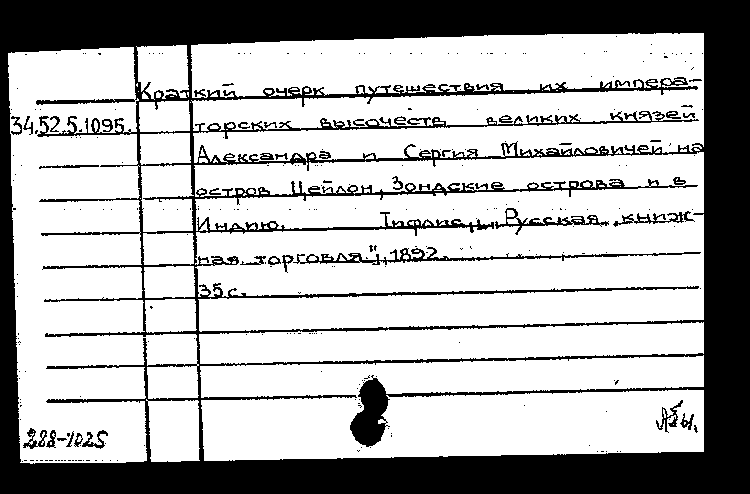 Краткий очерк путешествия их импера-
34.52.5.1095. торских высочеств великих князей
Александра и Сергия Михайловичей на
остров Цейлон, Зондские острова и в
Индию. Тифлис, „Русская книж-
ная торговля", 1892.
35 с.
288-1025